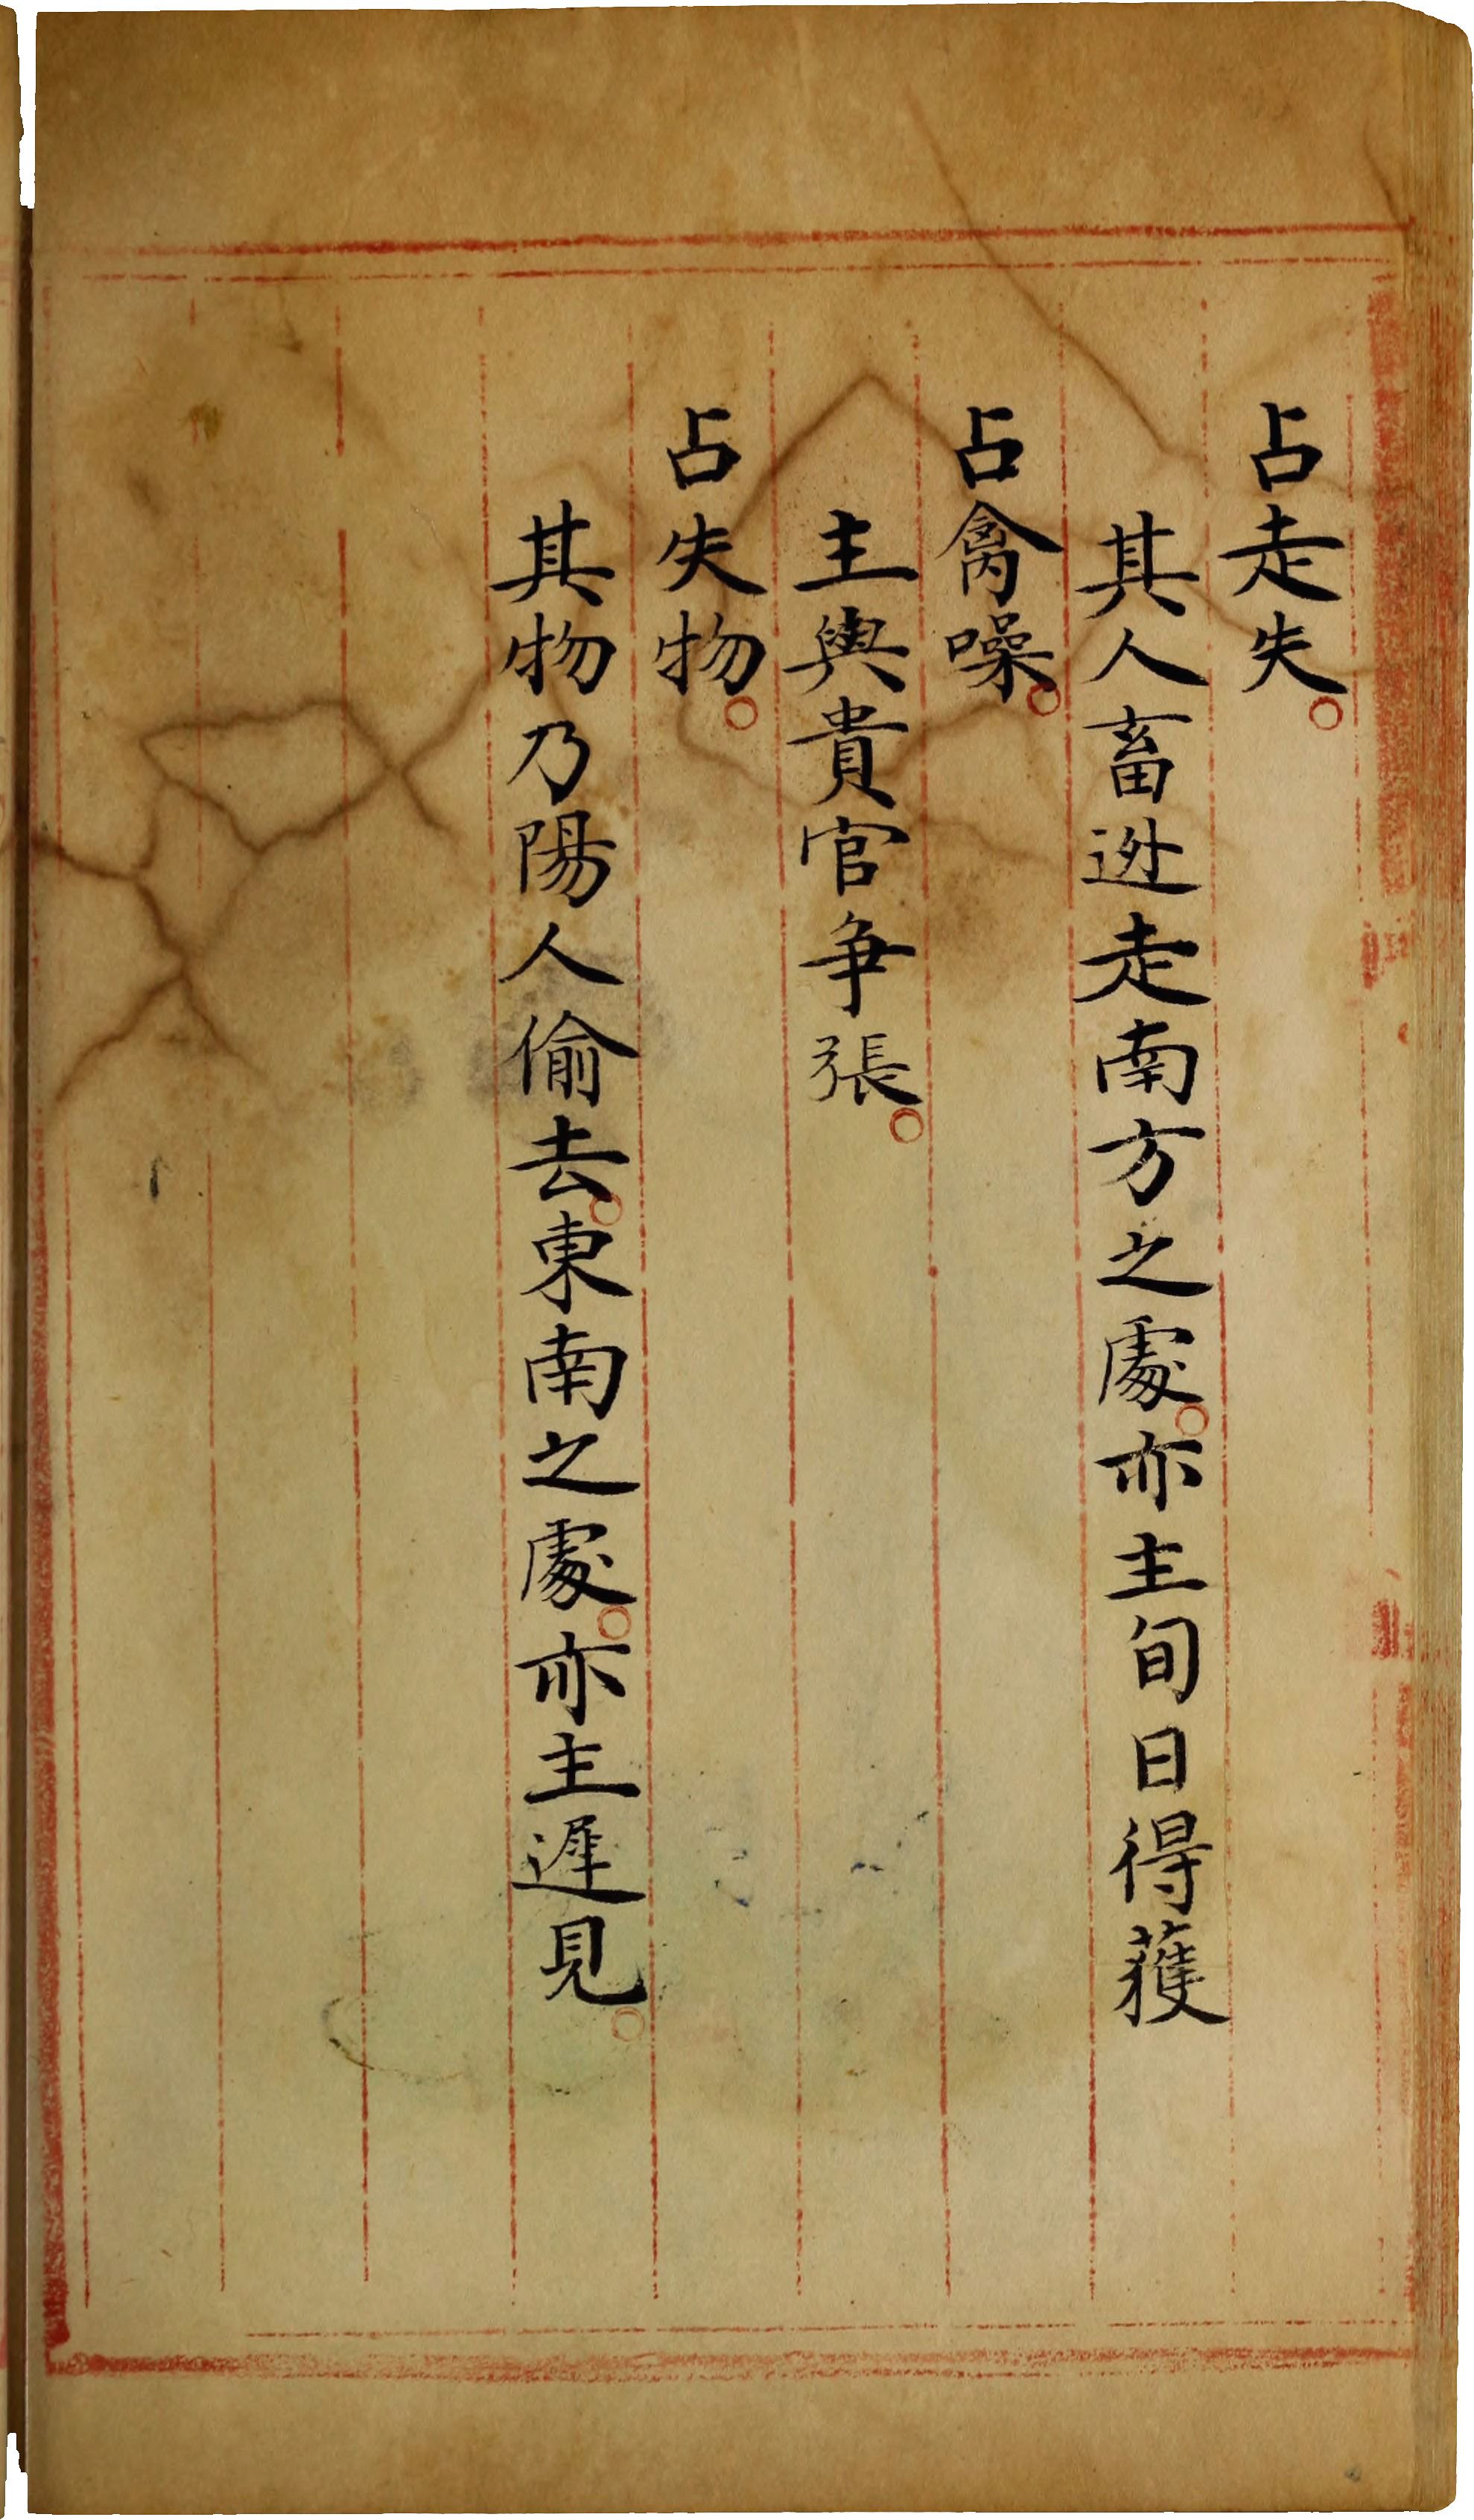 占走失。
其人畜迯走南方之處。亦主旬日得獲
占禽噪。
主與貴官争張。
占失物。
其物乃陽人偷去。東南之處。亦主遲見。